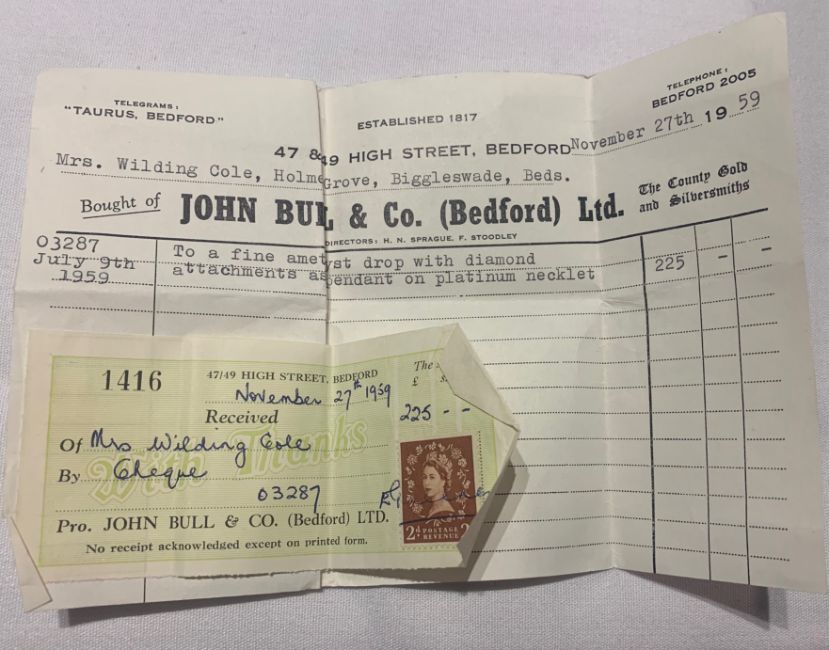 TELEGRAMS:
"TAURUS, BEDFORD"
ESTABLISHED 1817
TELEPHONE:
BEDFORD 2005
47 & 49 HIGH STREET, BEDFORD
November 27th 19 59
Mrs. Wilding Cole, Holme Grove, Biggleswade, Beds.
Bought of JOHN BULL & Co. (Bedford) Ltd.
The County Gold
and Silversmiths
DIRECTORS: H. N. SPRAGUE, F. STOODLEY
03287
July 9th
1959
To a fine ametyst drop with diamond
attachments as pendant on platinum necklet
225 - -
1416
47/49 HIGH STREET, BEDFORD
The
£ s.
November 27th 1959
Received
225 - -
Of Mrs Wilding Cole
With Thanks
By Cheque
03287
Pro. JOHN BULL & CO. (Bedford) LTD.
No receipt acknowledged except on printed form.
2d POSTAGE
REVENUE